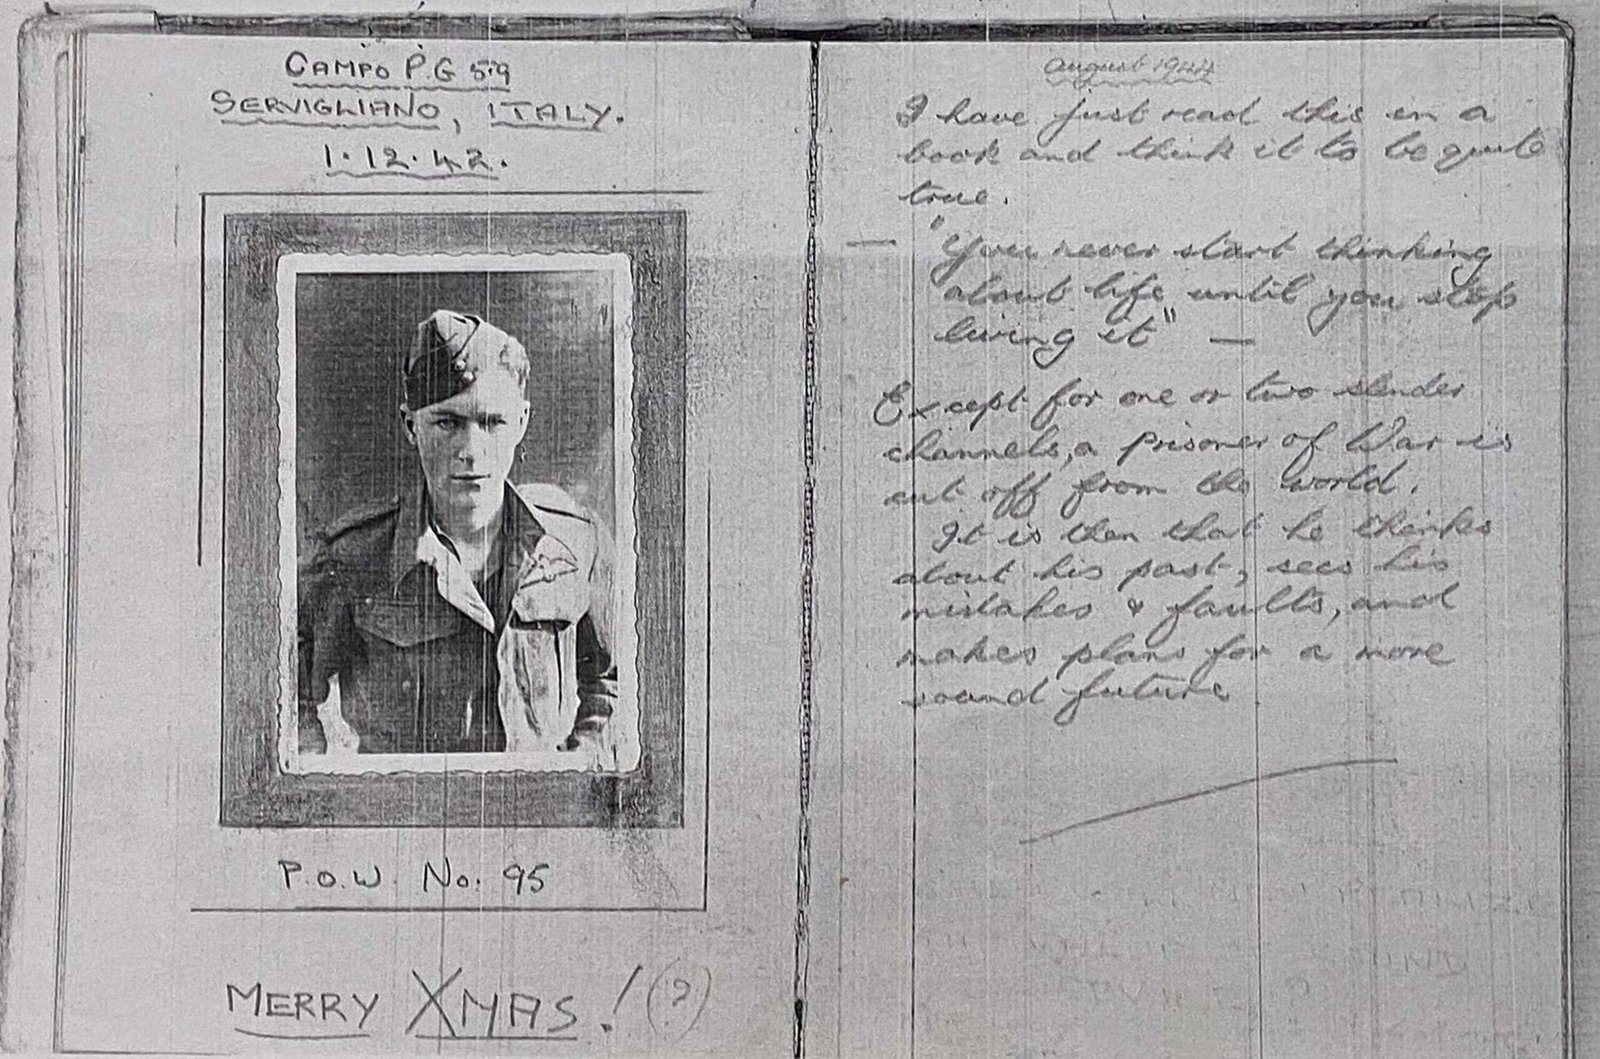 CAMPO P.G 59
SERVIGLIANO, ITALY.
1.12.42.
P.O.W. No. 95
MERRY XMAS! (?)
August 1944
I have just read this in a
book and think it to be quite
true.
— "You never start thinking
about life until you stop
living it" —
Except for one or two slender
channels, a prisoner of War is
cut off from the world.
It is then that he thinks
about his past, sees his
mistakes & faults, and
makes plans for a more
sound future